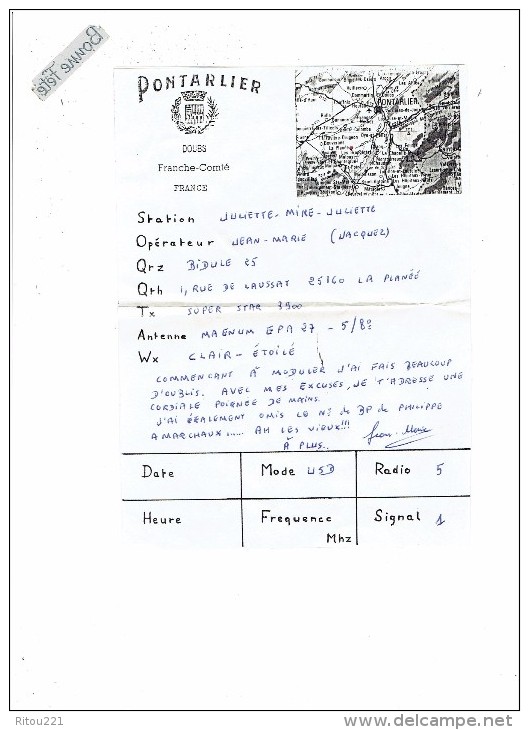 Bonne Fête
PONTARLIER
DOUBS
Franche-Comté
FRANCE
PONTARLIER
Station JULIETTE-MIKE-JULIETTE
Opérateur JEAN-MARIE (JACQUEZ)
Qrz BIDULE 25
Qth 1, RUE DE LAUSSAT 25160 LA PLANÉE
Tx SUPER STAR 3900
Antenne MAGNUM GPA 27 - 5/8è
Wx CLAIR - ÉTOILÉ
COMMENCANT À MODULER J'AI FAIS BEAUCOUP
D'OUBLIS. AVEC MES EXCUSES, JE T'ADRESSE UNE
CORDIALE POIGNEE DE MAINS.
J'AI ÉGALEMENT OMIS LE N° de BP de PHILIPPE
A MARCHAUX..... AH LES VIEUX!!!
À PLUS.. Jean-Marie
Date Mode USB Radio 5
Heure Frequence Signal 1
Mhz
Ritou221 www.delcampe.net